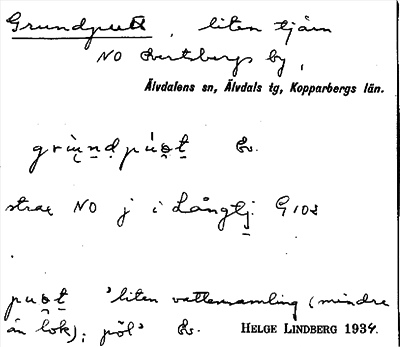 Grundputt, liten tjärn
NO Evertsbergs by,
Älvdalens sn, Älvdals tg, Kopparbergs län.
Ev.
strax NO j i Långtj. G108
'liten vattensamling (mindre
än lok); pöl' Ev. HELGE LINDBERG 1934.